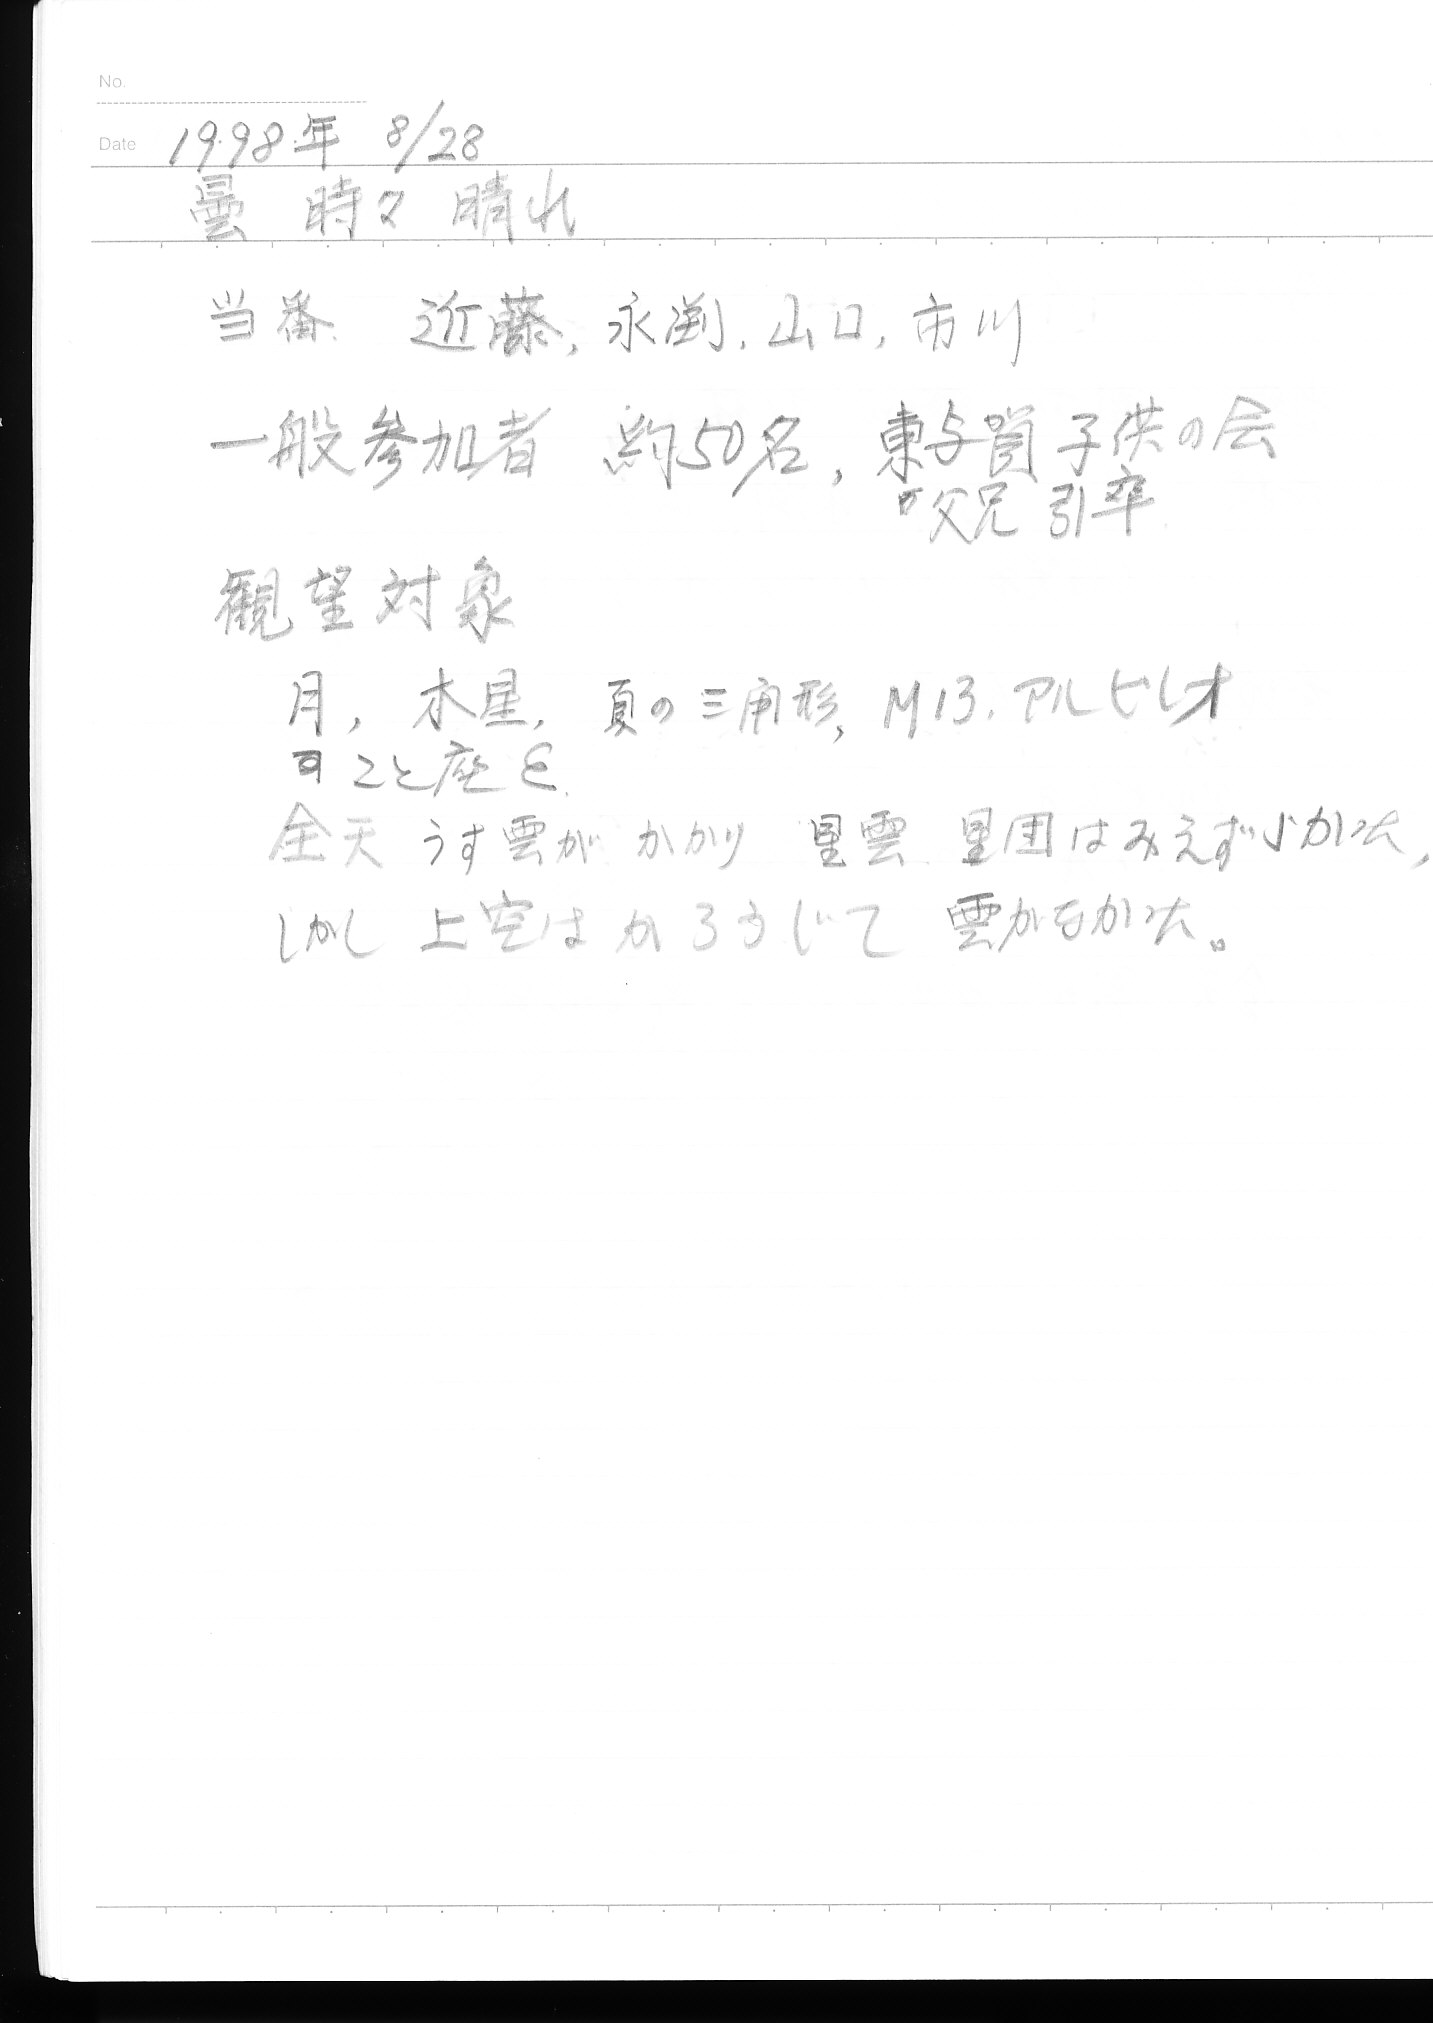 No.
Date 1998年 8/28
曇 時々 晴れ
当番 近藤, 永渕, 山口, 市川
一般参加者 約50名, 東与賀子供の会
父兄 引率
観望対象
月, 木星, 夏の三角形, M13, アルビレオ
こと座ε
全天 うす雲が かかり 星雲 星団はみえずらかった,
しかし 上空は かろうじて 雲がなかった。